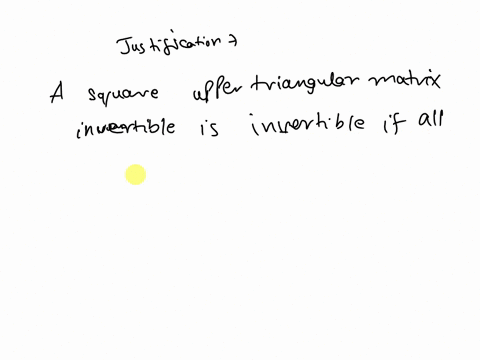 Justification →
A square upper triangular matrix
invertible is invertible if all